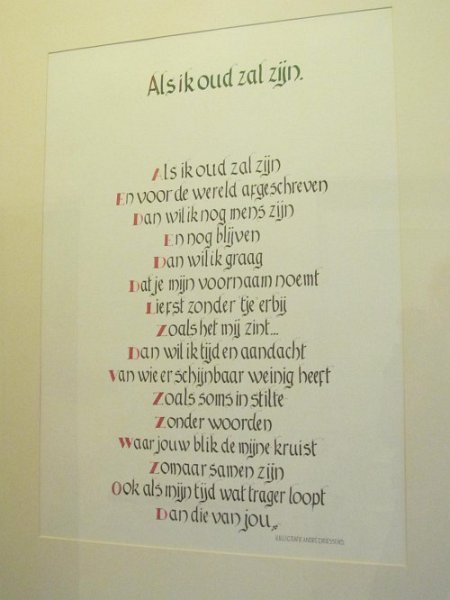 Als ik oud zal zijn.
Als ik oud zal zijn
En voor de wereld afgeschreven
Dan wil ik nog mens zijn
En nog blijven
Dan wil ik graag
Dat je mijn voornaam noemt
Liefst zonder 'tje' erbij
Zoals het mij zint...
Dan wil ik tijd en aandacht
Van wie er schijnbaar weinig heeft
Zoals soms in stilte
Zonder woorden
Waar jouw blik de mijne kruist
Zomaar samen zijn
Ook als mijn tijd wat trager loopt
Dan die van jou